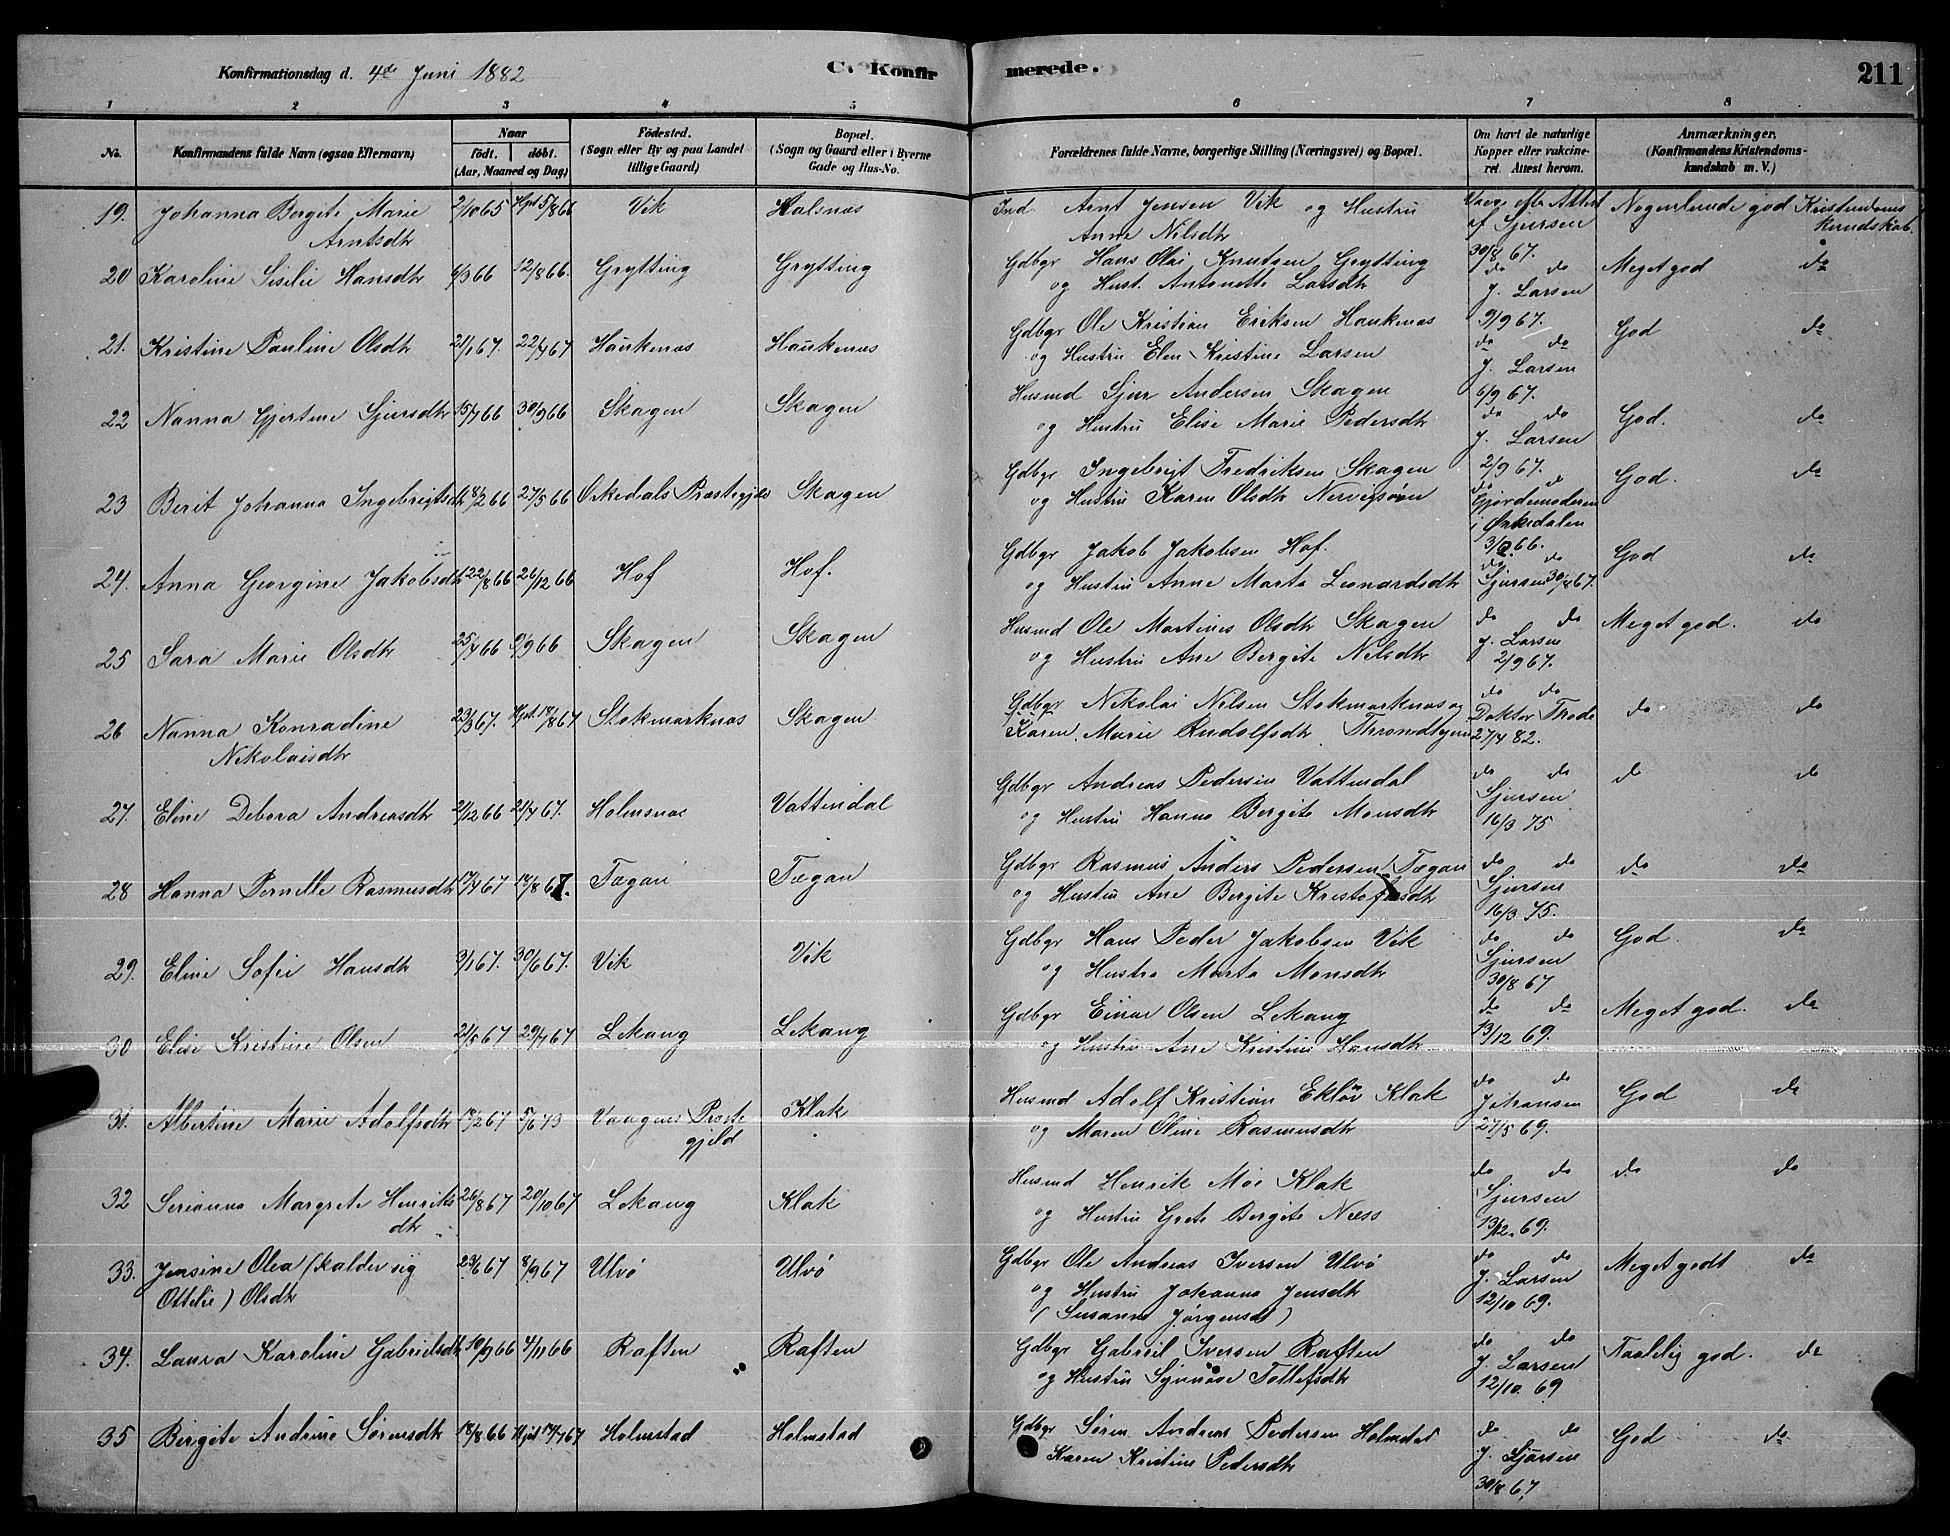 Konfirmationsdag d. 4de Juni 1882
C. Konfir merede.
211
1 2 3 4 5 6 7 8
No.
Konfirmandens fulde Navn (ogsaa Efternavn)
Naar
födt. döbt.
(Aar, Maaned og Dag)
Födested.
(Sogn eller By og paa Landet
tillige Gaard)
Bopæl.
(Sogn og Gaard eller i Byerne
Gade og Hus-No.
Forældrenes fulde Navne, borgerlige Stilling (Næringsvei) og Bopæl.
Om havt de naturlige
Kopper eller vakcine-
ret. Attest herom.
Anmærkninger.
(Konfirmandens Kristendoms-
kundskab m. V.)
19. Johanna Bergite Marie 2/10 65 Hjd 5/8 66 Vik Halsnæs Ind. Arnt Jensen Vik og Hustru Attest Nogenlunde god Kristendoms
Arntsdtr Anne Nilsdtr af Sjursen kundskab.
30/8 67.
20 Karoline Sisilie Hansdtr 6/3 66 12/8 66. Grytting Grytting Gdbgr Hans Olai Knutsen Grytting do do Meget god do
og Hust. Antonette Larsdtr J. Larsen
9/9 67.
21. Kristine Pauline Olsdtr 21/1 67. 22/4 67 Haukenæs Haukenæs Gdbgr Ole Kristian Eriksen Haukenæs do do God do
og Hustru Elen Kristine Larsen J. Larsen
6/9 67.
22 Nanna Gjertine Sjursdtr 15/7 66 30/9 66 Skagen Skagen Husmd Sjur Andersen Skagen do do God. do
og Hustru Elise Marie Pedersdtr J. Larsen
2/9 67.
23 Berit Johanna Ingebrigtsdtr 18/2 66 27/5 66 Orkedals Præstegjeld Skagen Gdbgr Ingebrigt Fredriksen Skagen do do God. do
og Hustru Karen Olsdtr Gjordemoderen
i Ørkedalen
66.
24. Anna Georgine Jakobsdtr 22/8 66 26/12 66 Hof Hof. Gdbgr Jakob Jakobsen Hof. do do God do
og Hustru Anne Marta Leonardsdtr Sjursen 30/8 67.
25 Sara Marie Olsdtr 25/4 66 9/9 66 Skagen Skagen Husmd Ole Martines Olsdtr Skagen do do Meget god. do
og Hustru Ane Bergite Nilsdtr J. Larsen
2/9 67.
26 Nanna Konradine 23/3 67. Hjd. 18/8 67 Stokmarknæs Skagen Gdbgr Nikolai Nilsen Stokmarknæs og do do do do
Nikolaisdtr Karen Marie Rudolfsdtr Throndhjem Doktor Thode
27/4 82.
27. Eline Debora Andreasdtr 21/12 66 21/4 67. Holmsnæs Vattendal Gdbgr Andreas Pedersen Vattendal do do do do
og Hustru Hanna Bergite Monsdtr Sjursen
16/3 75
28 Hanna Pernille Rasmusdtr 17/4 67 18/8 67. Tægan Tægan Gdbgr Rasmus Anders Pedersen Tægan do do do do
og Hustru Ane Bergite Kristofersdtr Sjursen
16/3 75.
29. Eline Sofie Hansdtr 3/1 67. 30/6 67. Vik Vik Gdbgr Hans Peder Jakobsen Vik do do God. do
og Hustru Marta Monsdtr Sjursen
30/8 67
30 Elise Kristine Olsen 21/5 67 29/7 67 Lekang Lekang Gdbgr Einar Olsen Lekang do do Meget god. do
og Hustru Ane Kristine Hansdtr 13/12 69.
31. Albertine Marie Adolfsdtr 18/2 67 5/6 73 Vaagnes Præste Klak Husmd Adolf Kristian Ekløv Klak do do God do
gjeld og Maren Oline Rasmusdtr Johansen
27/5 69.
32 Serianna Margrete Henriks 26/8 67 20/10 67 Lekang Klak Husmd Henrik Moe Klak do do do do
dtr og Hustru Grete Bergite Næss Sjursen
13/12. 69.
33. Jensine Olea (kalder sig 23/6 67 8/9 67 Ulvø Ulvø Gdbgr Ole Andreas Iversen Ulvø do do Meget godt do
Ottelie) Olsdtr og Hustru Johanna Jensdtr J. Larsen
(Susanna Jørgensdt) 12/10 69.
34. Laura Karoline Gabrielsdtr 10/9 66 4/11 66 Raften Raften Gdbgr Gabriel Iversen Raften do do Taalelig god. do
og Hustru Synnøve Tollefsdtr J. Larsen
12/10. 69
35 Birgite Andrine Sørensdtr 18/8 66 Hjd 14/7 67 Holmstad Holmstad Gdbgr Søren Andreas Pedersen Holmstad do do God do
Karen Kristine Pedersdtr J. Sjursen
30/8 67